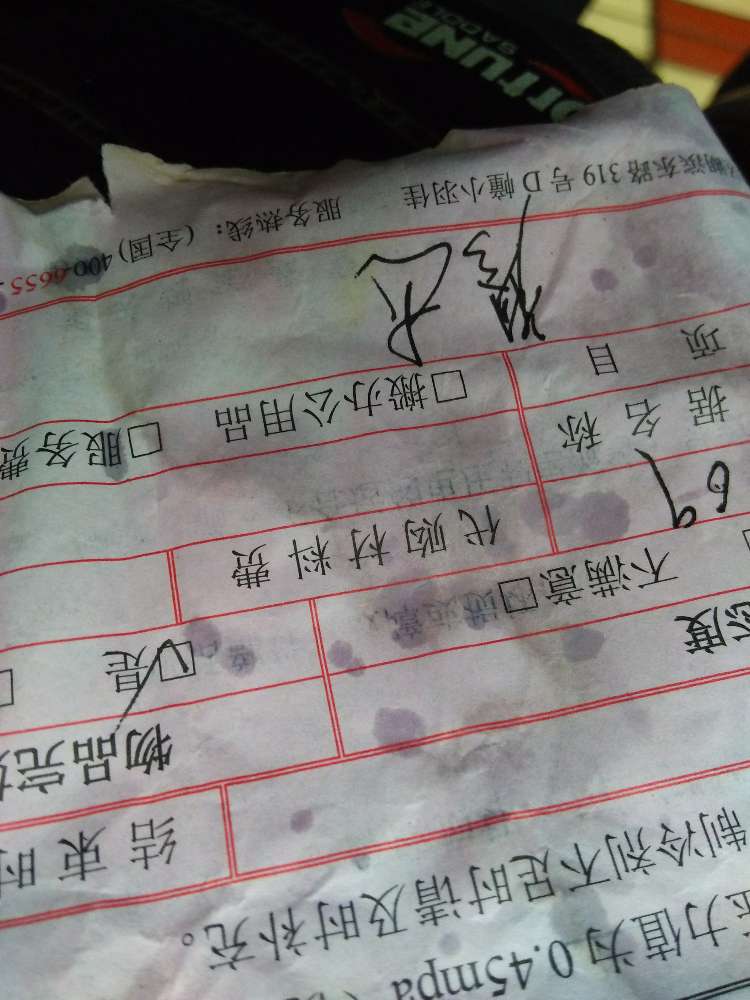 压力值为 0.45mpa（
制冷剂不足时请及时补充。
结束时
态度 物品完
不满意□ □是 □
69 代购材料费
据名称
项目 □搬办公用品 □服务费
湖滨东路 319 号 D 幢小羽佳 服务热线：（全国）400-6655-
FORTUNE